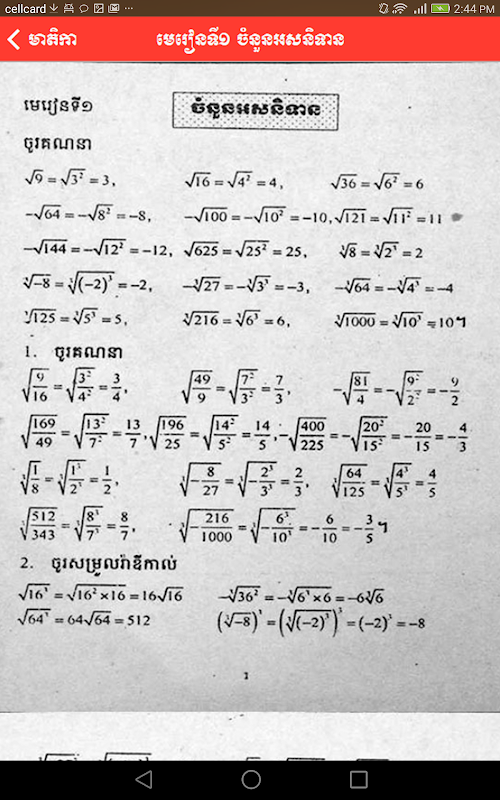 cellcard 2:44 PM
មាតិកា មេរៀនទី១ ចំនួនអសនិទាន
មេរៀនទី១ ចំនួនអសនិទាន
ចូរគណនា
√9 = √3² = 3, √16 = √4² = 4, √36 = √6² = 6
−√64 = −√8² = −8, −√100 = −√10² = −10, √121 = √11² = 11
−√144 = −√12² = −12, √625 = √25² = 25, ∛8 = ∛2³ = 2
∛−8 = ∛(−2)³ = −2, −∛27 = −∛3³ = −3, −∛64 = −∛4³ = −4
∛125 = ∛5³ = 5, ∛216 = ∛6³ = 6, ∛1000 = ∛10³ = 10។
1. ចូរគណនា
√9/16 = √3²/4² = 3/4, √49/9 = √7²/3² = 7/3, −√81/4 = −√9²/2² = −9/2
√169/49 = √13²/7² = 13/7, √196/25 = √14²/5² = 14/5, −√400/225 = −√20²/15² = −20/15 = −4/3
∛1/8 = ∛1³/2³ = 1/2, ∛−8/27 = ∛−2³/3³ = 2/3, ∛64/125 = ∛4³/5³ = 4/5
∛512/343 = ∛8³/7³ = 8/7, ∛−216/1000 = ∛−6³/10³ = −6/10 = −3/5។
2. ចូរសម្រួលរ៉ាឌីកាល់
√16³ = √16²×16 = 16√16 −∛36² = −∛6³×6 = −6∛6
√64³ = 64√64 = 512 (∛−8)³ = (∛(−2)³)³ = (−2)³ = −8
1